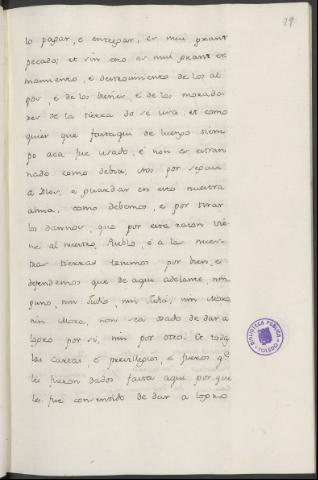 29
lo pagar, e entregar, es mui grant
pecado; et sin esto es mui grant es
tramiento, e destroimiento de los al
gos, e de los bienes, e de los morado
res de la tierra do se usa. et como
quier que fastaqui de luengo tiem
po aca fue usado, e non es estran
nado como debia; nos por servir
a Dios, e guardar en esto nuestra
alma, como debemos, e por tirar
los dannos, que por esta razon vie
ne al nuestro Pueblo, e a las nues
tras tierras tenemos por bien, e
defendemos que de aqui adelante, nin
guno, nin Judio, nin Judia, nin Moro,
nin Mora, non sea osado de dar a
logro por si, nin por otro. Et todas
las cartas, e previllegios, e fueros qe
les fueron dados fasta aqui por que
les fue consentido de dar a logro
BIBLIOTECA PUBLICA
TOLEDO